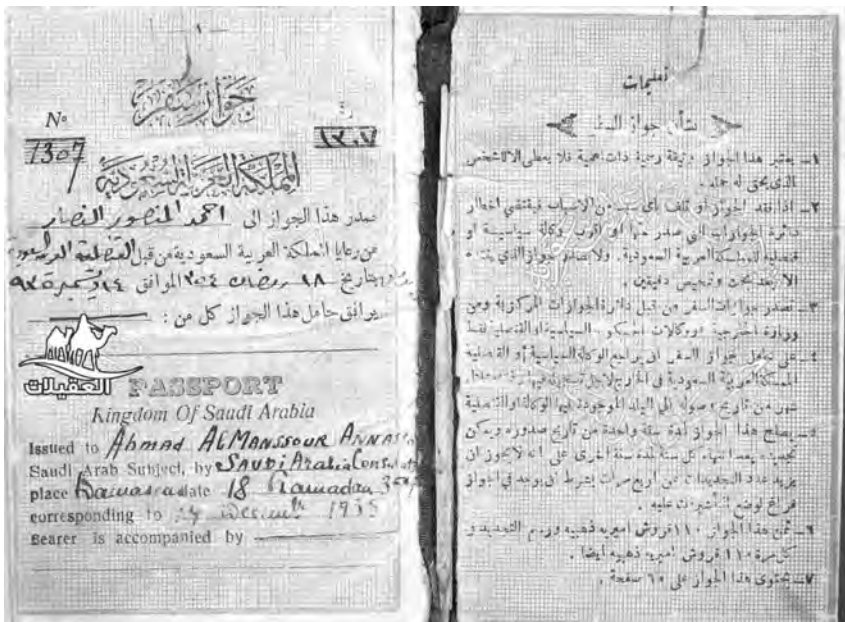 ١
جواز سفر
Nº
رقم
1307
١٣٠٧
المملكة العربية السعودية
صدر هذا الجواز الى احمد المنصور النصار
من رعايا المملكة العربية السعودية من قبل القنصلية العربية السعودية
بتاريخ ١٨ رمضان ٣٥٤ الموافق ١٤
يرافق حامل هذا الجواز كل من :
العقيلات
PASSPORT
Kingdom Of Saudi Arabia
Issued to Ahmad ALMANSSOUR
Saudi Arab Subject, by Saudi Arabia
place Damascus date 18 Ramadan
corresponding to 1935
Bearer is accompanied by
تعليمات
بشأن جواز السفر
١ـ يعتبر هذا الجواز وثيقة رسمية ذات اهمية فلا يعطى الا للشخص
الذي يحق له حمله .
٢ـ اذا فقد الجواز او تلف بأي سبب من الاسباب فيقتضي اخطار
دائرة الجوازات التي صدر منها او اقرب وكالة سياسية او
قنصلية للمملكة العربية السعودية . ولا يصدر جواز
الا بعد بحث وتمحيص دقيقين .
٣ـ تصدر جوازات السفر من قبل دائرة الجوازات المركزية ومن
وزارة الخارجية ووكالات السياسية او القنصلية فقط
٤ـ على حامل جواز السفر ان يراجع الوكالة السياسية أو القنصلية
للمملكة العربية السعودية في الخارج لاجل تسجيل
شهر من تاريخ وصوله الى البلد الموجودة فيها الوكالة او القنصلية
٥ـ يصلح هذا الجواز لمدة سنة واحدة من تاريخ صدوره ويمكن
تجديده بعد انتهاء كل سنة لمدة سنة اخرى على انه لا يجوز ان
يزيد عدد التجديدات عن اربع مرات بشرط ان يوجد في الجواز
فراغ لوضع التأشيرات عليه .
٦ـ ثمن هذا الجواز ١١٠ قروش اميريه ذهبيه ورسم التجديد
كل مرة ١١٠ قروش اميريه ذهبيه ايضا .
٧ـ يحتوى هذا الجواز على صفحة .